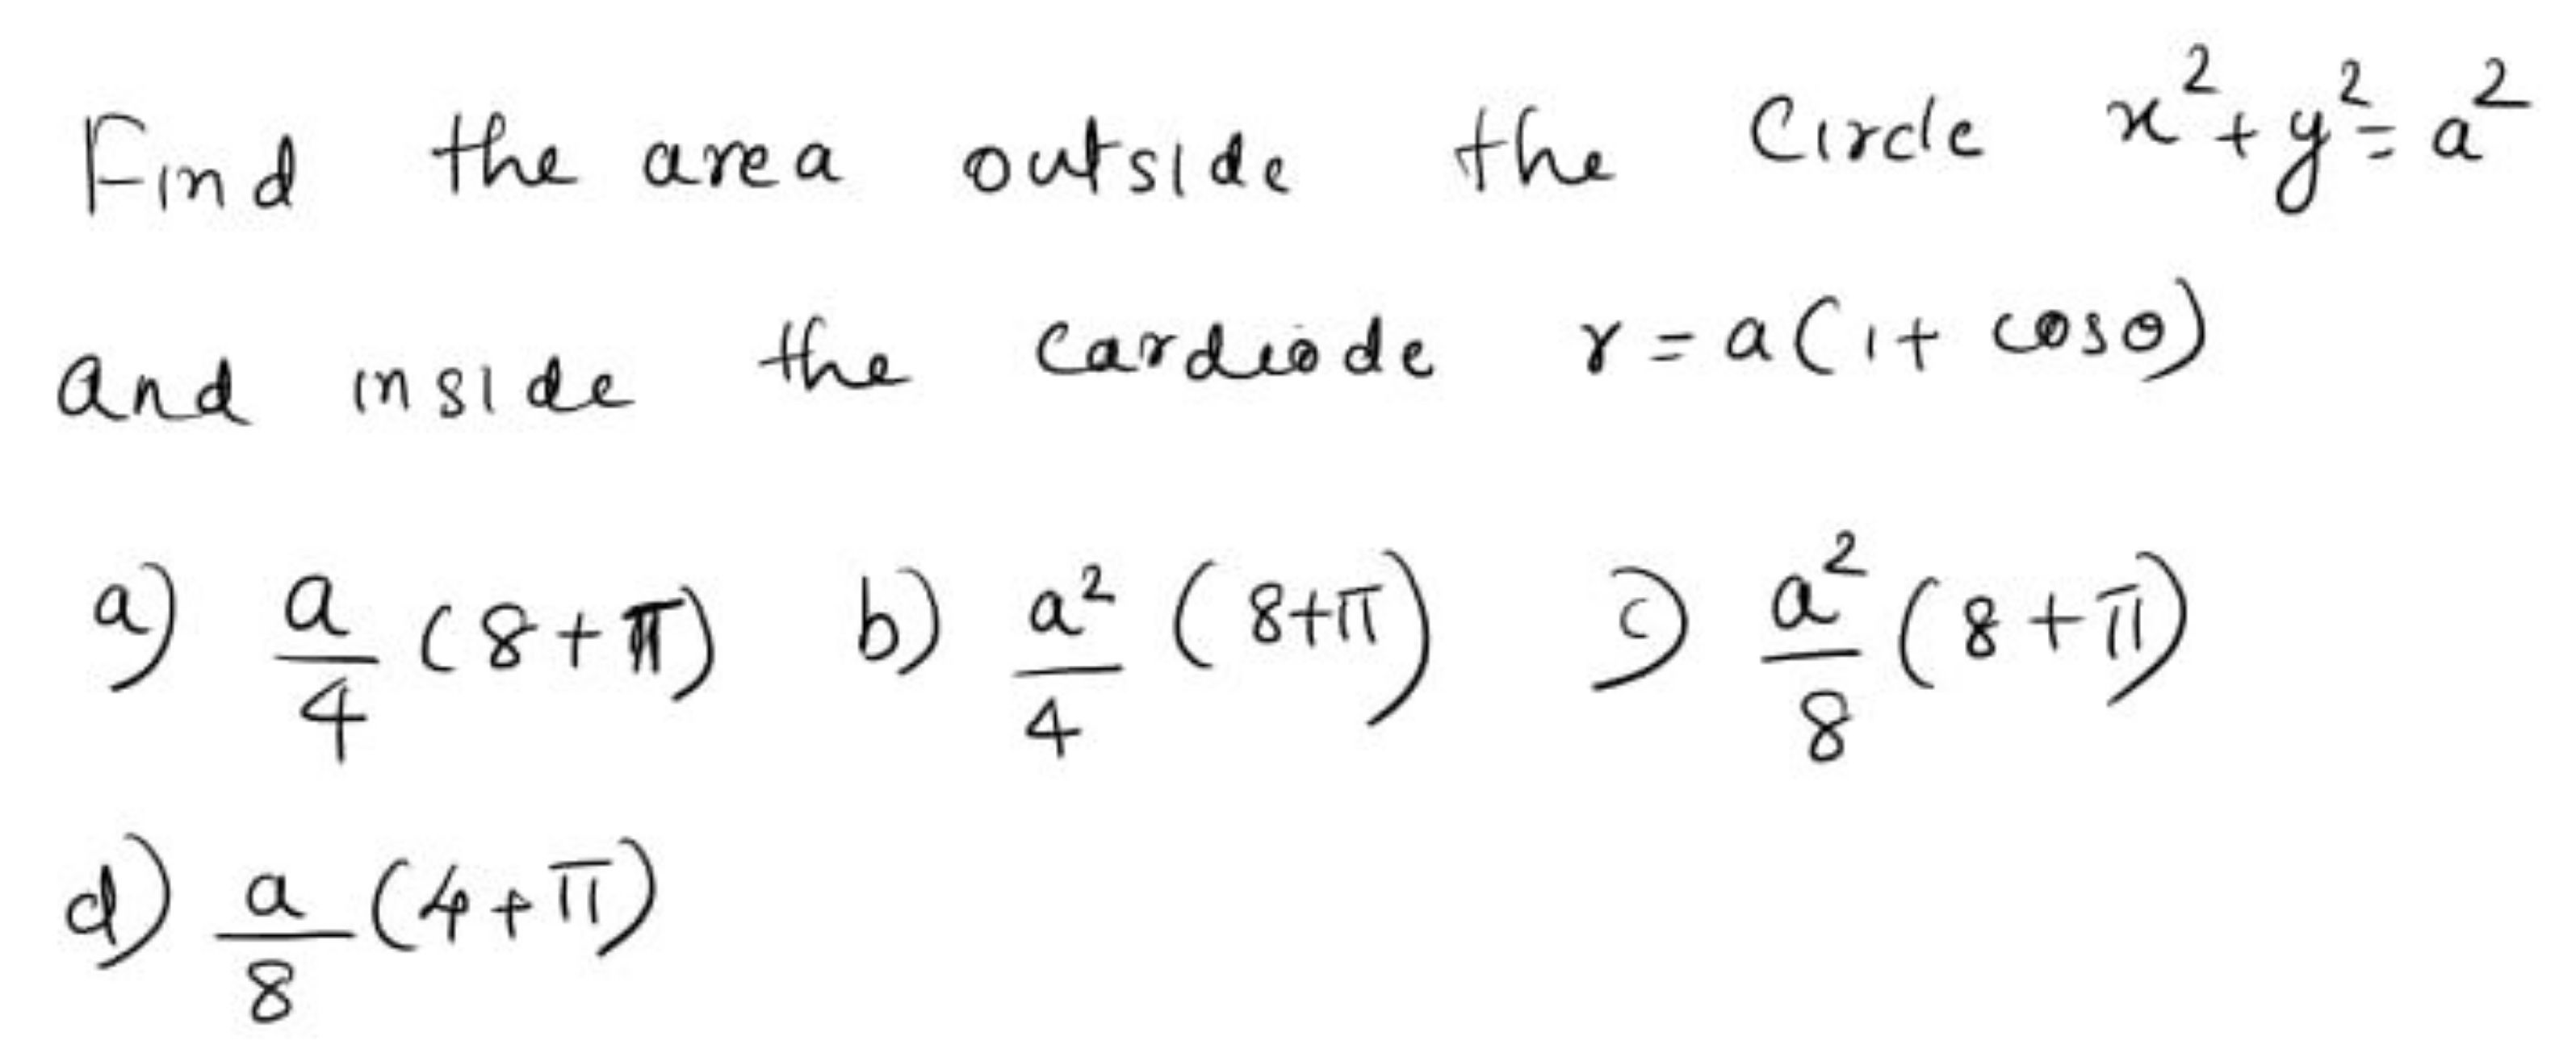 Find the area outside the Circle x²+y²=a²
and inside the cardiode r=a(1+cosθ)
a) a/4 (8+π) b) a²/4 (8+π) c) a²/8 (8+π)
d) a/8 (4+π)